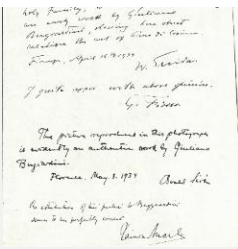 Holy Family, is
an early work by Giuliano
Bugiardini, showing how strict
relations the art of
April 1934
W. Suida
I quite agree with above opinion.
G. Fiocco
The picture reproduced in this photograph
is evidently an authentic work by Giuliano
Bugiardini.
Florence, May 8. 1934
The attribution of this picture to Bugiardini
seems to me perfectly correct